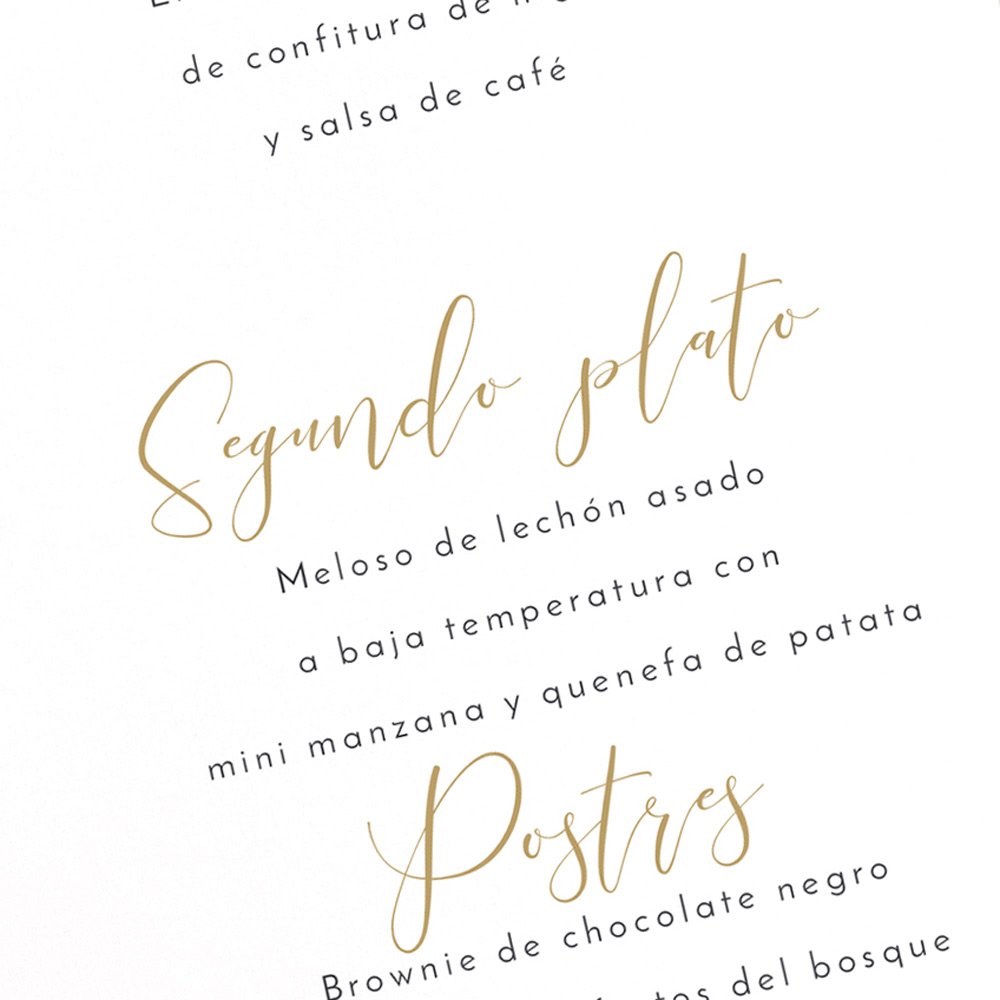 de confitura de
y salsa de café
Segundo plato
Meloso de lechón asado
a baja temperatura con
mini manzana y quenefa de patata
Postres
Brownie de chocolate negro
del bosque